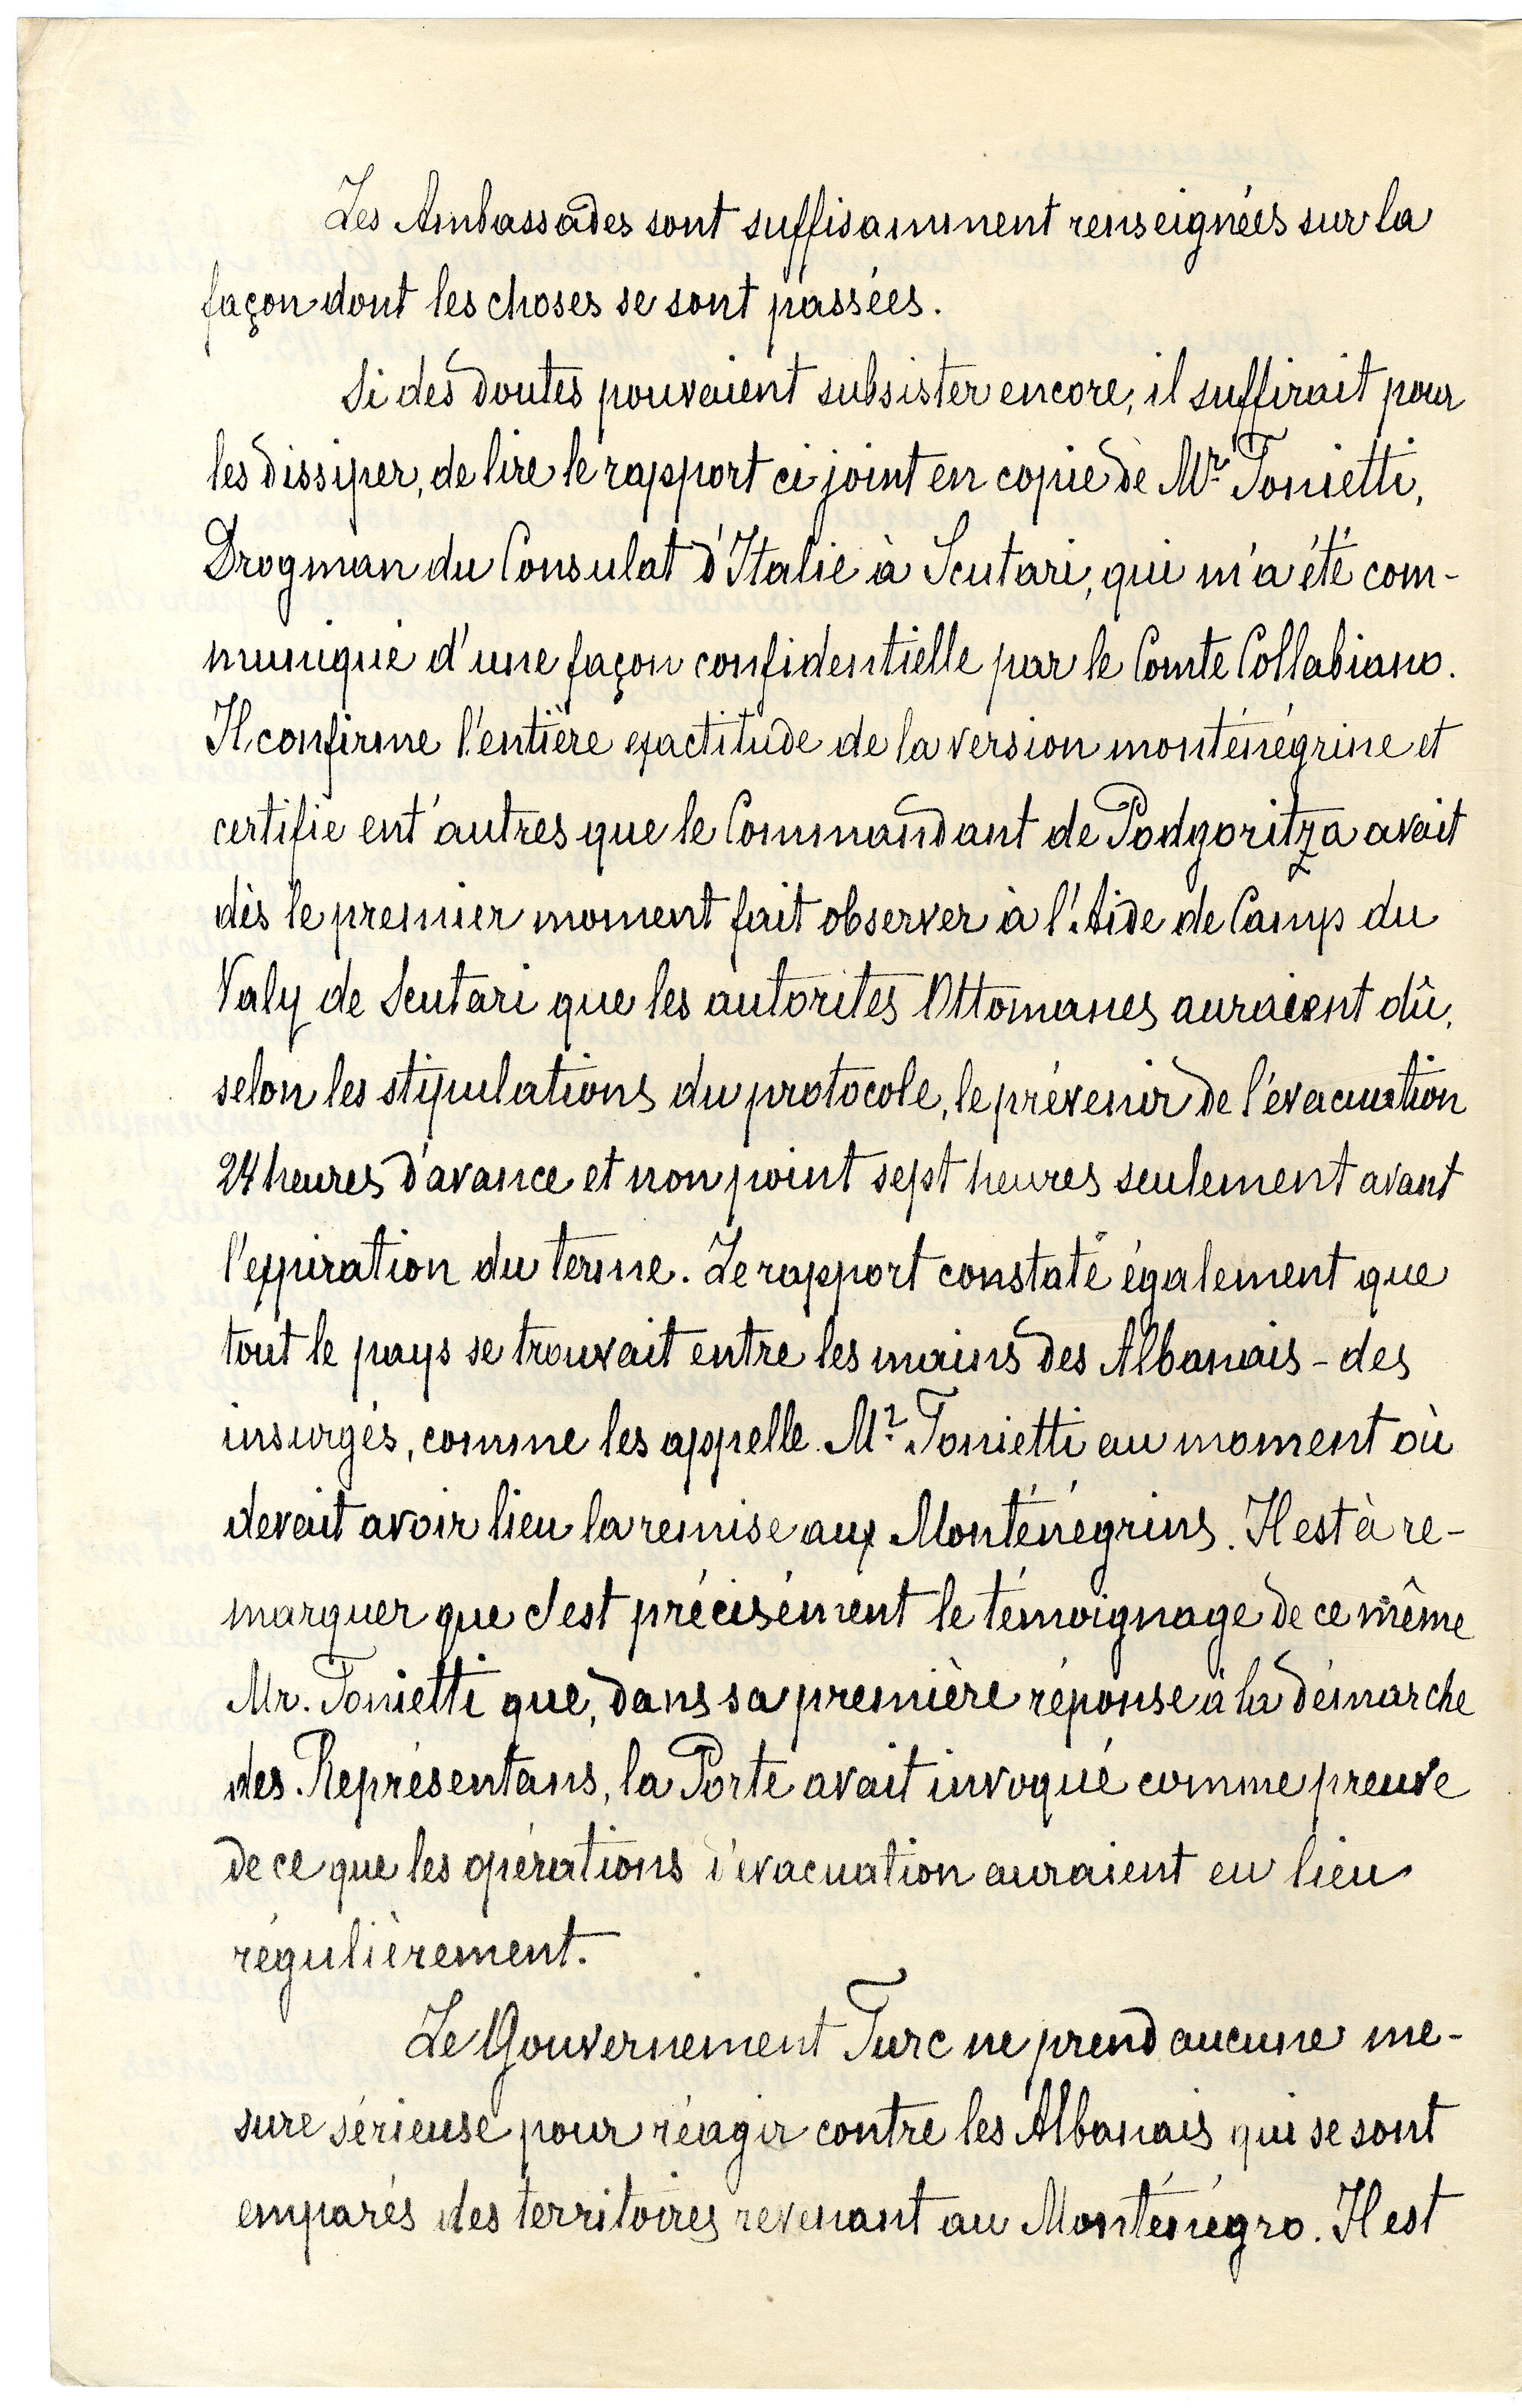 Les Ambassades sont suffisamment renseignées sur la
façon dont les choses se sont passées.
Si des doutes pouvaient subsister encore, il suffirait pour
les dissiper, de lire le rapport ci joint en copie de Mr Tonietti,
Drogman du Consulat d'Italie à Scutari, qui m'a été com-
muniqué d'une façon confidentielle par le Comte Collabiano.
Il confirme l'entière exactitude de la version monténégrine et
certifie ent'autres que le Commandant de Podgoritza avait
dès le premier moment fait observer à l'Aide de Camp du
Valy de Scutari que les autorités Ottomanes auraient dû,
selon les stipulations du protocole, le prévenir de l'évacuation
24 heures d'avance et non point sept heures seulement avant
l'expiration du terme. Le rapport constate également que
tout le pays se trouvait entre les mains des Albanais - des
insurgés, comme les appelle Mr Tonietti au moment où
devait avoir lieu la remise aux Monténégrins. Il est à re-
marquer que c'est précisément le témoignage de ce même
Mr. Tonietti que, dans sa première réponse à la démarche
des Représentans, la Porte avait invoqué comme preuve
de ce que les opérations d'évacuation auraient eu lieu
régulièrement.
Le Gouvernement Turc ne prend aucune me-
sure sérieuse pour réagir contre les Albanais qui se sont
emparés des territoires revenant au Monténégro. Il est